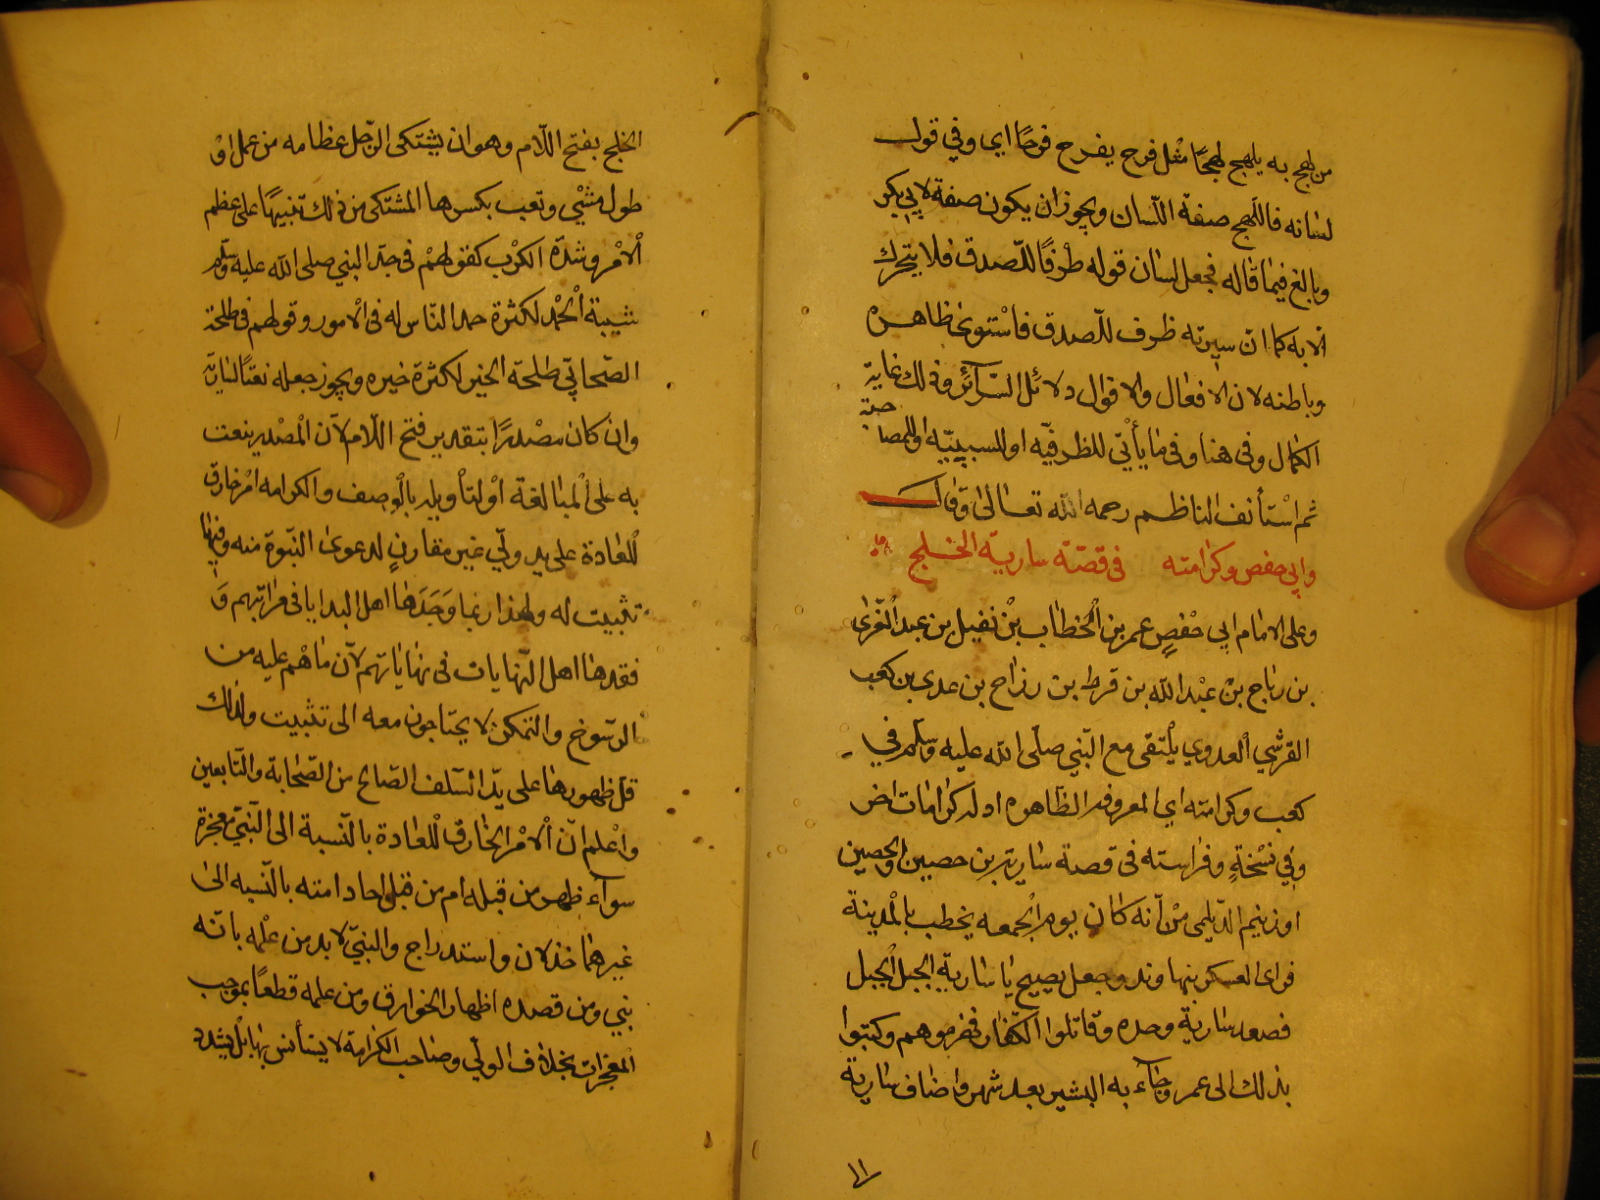 من لهج به يلهج لهجًا مثل فرح يفرح فرحًا اي وفي قول
لسانه فاللهج صفة اللسان ويجوز ان يكون صفة لابي بكر
وبالغ فيما قاله فجعل لسان قوله ظرفًا للصدق فلا يتحرك
الا به كما ان سيرته ظرف للصدق فاستوى ظاهره
وباطنه لان الافعال والاقوال دلائل السرائر وذلك غاية
الكمال وفى هنا وفى ما يأتي للظرفيه او للسببيه او للمصا
حبة
ثم استأنف الناظم رحمه الله تعالى وقال
وابي حفص وكرامته في قصة سارية الخلج
وعلى الامام ابي حفصٍ عمر بن الخطاب بن نفيل بن عبد العزى
بن رباح بن عبد الله بن قرط بن رزاح بن عدى بن كعب
القرشي العدوي يلتقى مع النبي صلى الله عليه وسلم في
كعب وكرامته اي المعروفه الظاهره اذ له كرامات اخر
وفي نسخةٍ وفراسته فى قصة سارية بن حصين او الحصين
او زنيم الديلمى من أنه كان يوم الجمعه يخطب بالمدينة
فراى العسكر بنهاوند وجعل يصيح يا سارية الجبل الجبل
فصعد سارية وحده وقاتلوا الكفار فهزموهم وكتبوا
بذلك الى عمر وجاء به البشير بعد شهر واضاف سارية
١١
الخلج بفتح اللام وهو ان يشتكى الرجل عظامه من عمل او
طول مشي وتعب بكسرها المشتكى من ذلك تنبيهًا على عظم
الامر وشدة الكرب كقولهم فى جد النبي صلى الله عليه وسلم
شيبة الحمد لكثرة حمد الناس له فى الامور وقولهم فى طلحة
الصحابي طلحة الخير لكثرة خيره ويجوز جعله نعتًا لسارية
وان كان مصدرًا بتقدير فتح اللام لان المصدر ينعت
به على المبالغة او لتأويله بالوصف والكرامه امر خارق
للعادة على يد ولي غير مقارنٍ لدعوى النبوة منه وفيها
تثبيت له ولهذا ربما وجدها اهل البدايا فى بداياتهم و
فقدها اهل النهايات فى نهاياتهم لان ما هم عليه من
الرسوخ والتمكن لا يحتاجون معه الى تثبيت ولذلك
قل ظهورها على يد السلف الصالح من الصحابة والتابعين
واعلم ان الامر الخارق للعادة بالنسبة الى النبي معجزة
سواء ظهر من قبله ام من قبل احاد امته بالنسبه الى
غيرهما خذلان واستدراج والنبي لا بد من علمه بانه
نبي ومن قصده اظهار الخوارق ومن علمه قطعًا بموجب
المعجزات بخلاف الولي وصاحب الكرامة لا يستأنس بها بل يشتد